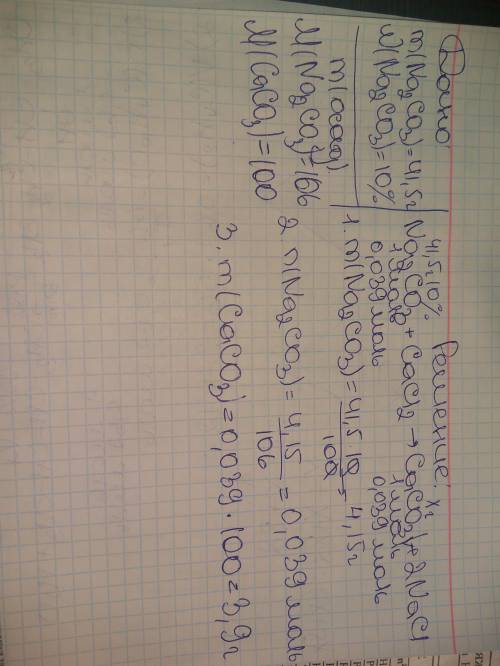 Дано:
m(Na2CO3)=41,5г
W(Na2CO3)=10%
m(осадка)
M(Na2CO3)=106
M(CaCO3)=100
Решение:
41,5г 10% xг
Na2CO3+CaCl2→CaCO3↓+2NaCl
1моль 1моль
0,039 моль 0,039 моль
1. m(Na2CO3)=41,5·10/100=4,15г
2. n(Na2CO3)=4,15/106=0,039 моль
3. m(CaCO3)=0,039·100=3,9г